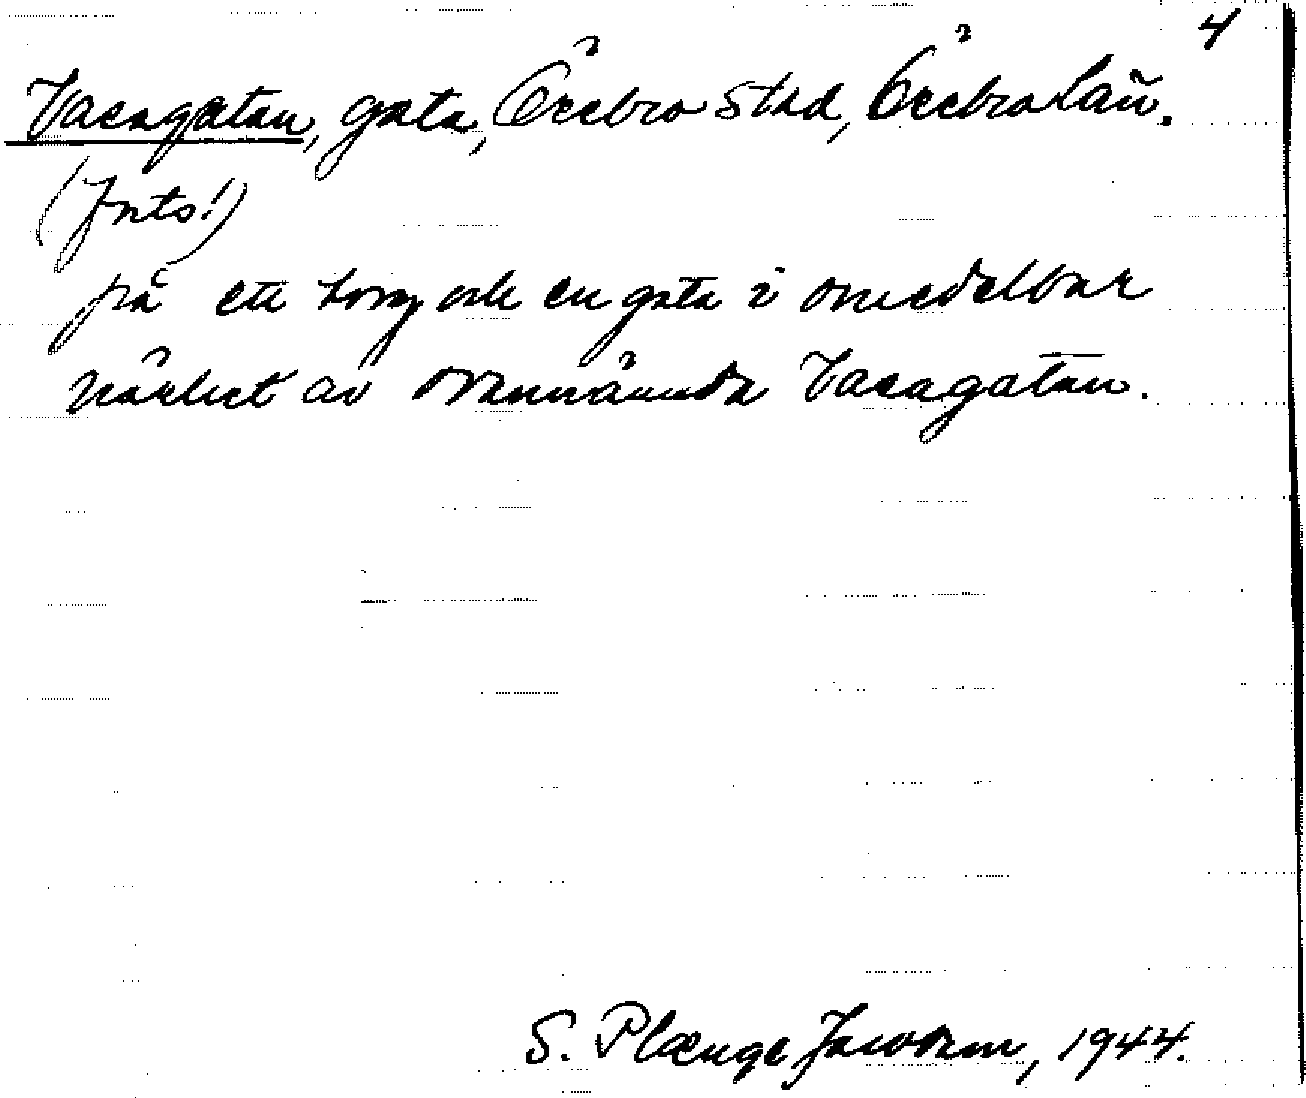 4
Vasagatan, gata, Örebro stad, Örebro län.
(Forts.)
på ett torg och en gata i omedelbar
närhet av ovannämnda Vasagatan.
S. Plænge Jacobson, 1944.